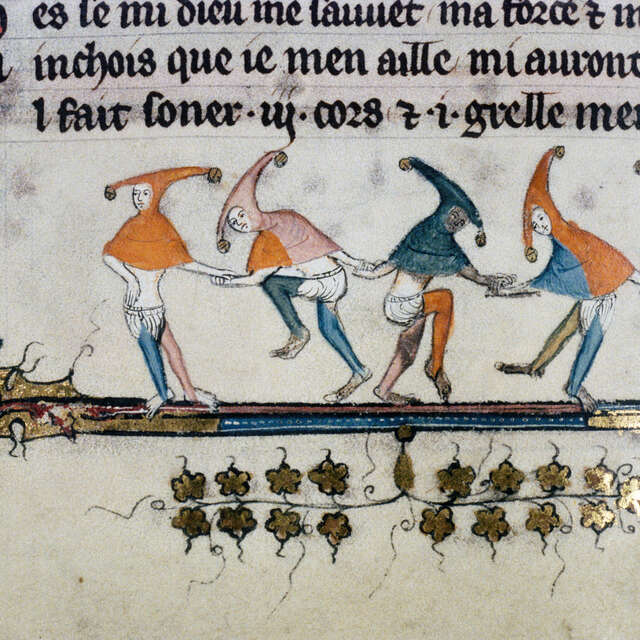 es se mi dieu me sauuet ma force ⁊ m
inchois que ie men aille mi auront
l fait soner · iij · cors ⁊ · i · grelle mer